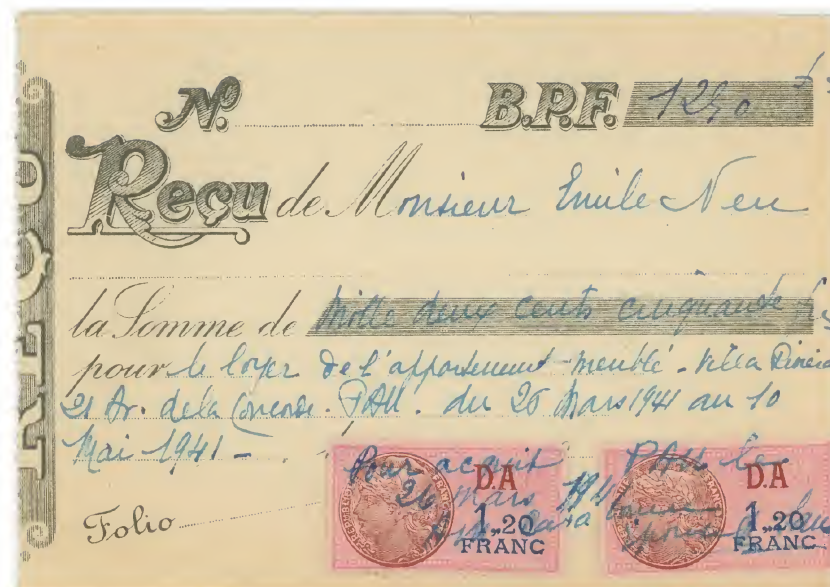 REÇU
N° B.P.F. 1250
Reçu de Monsieur Emile Neu
la Somme de Mille deux cents cinquante
pour le loyer de l'appartement meublé - Villa
21 Av. de la Concorde. PAU. du 26 Mars 1941 au 10
Mai 1941 -
Pour acquit PAU le
26 mars 1941
Folio
D.A 1,20 FRANC
D.A 1,20 FRANC